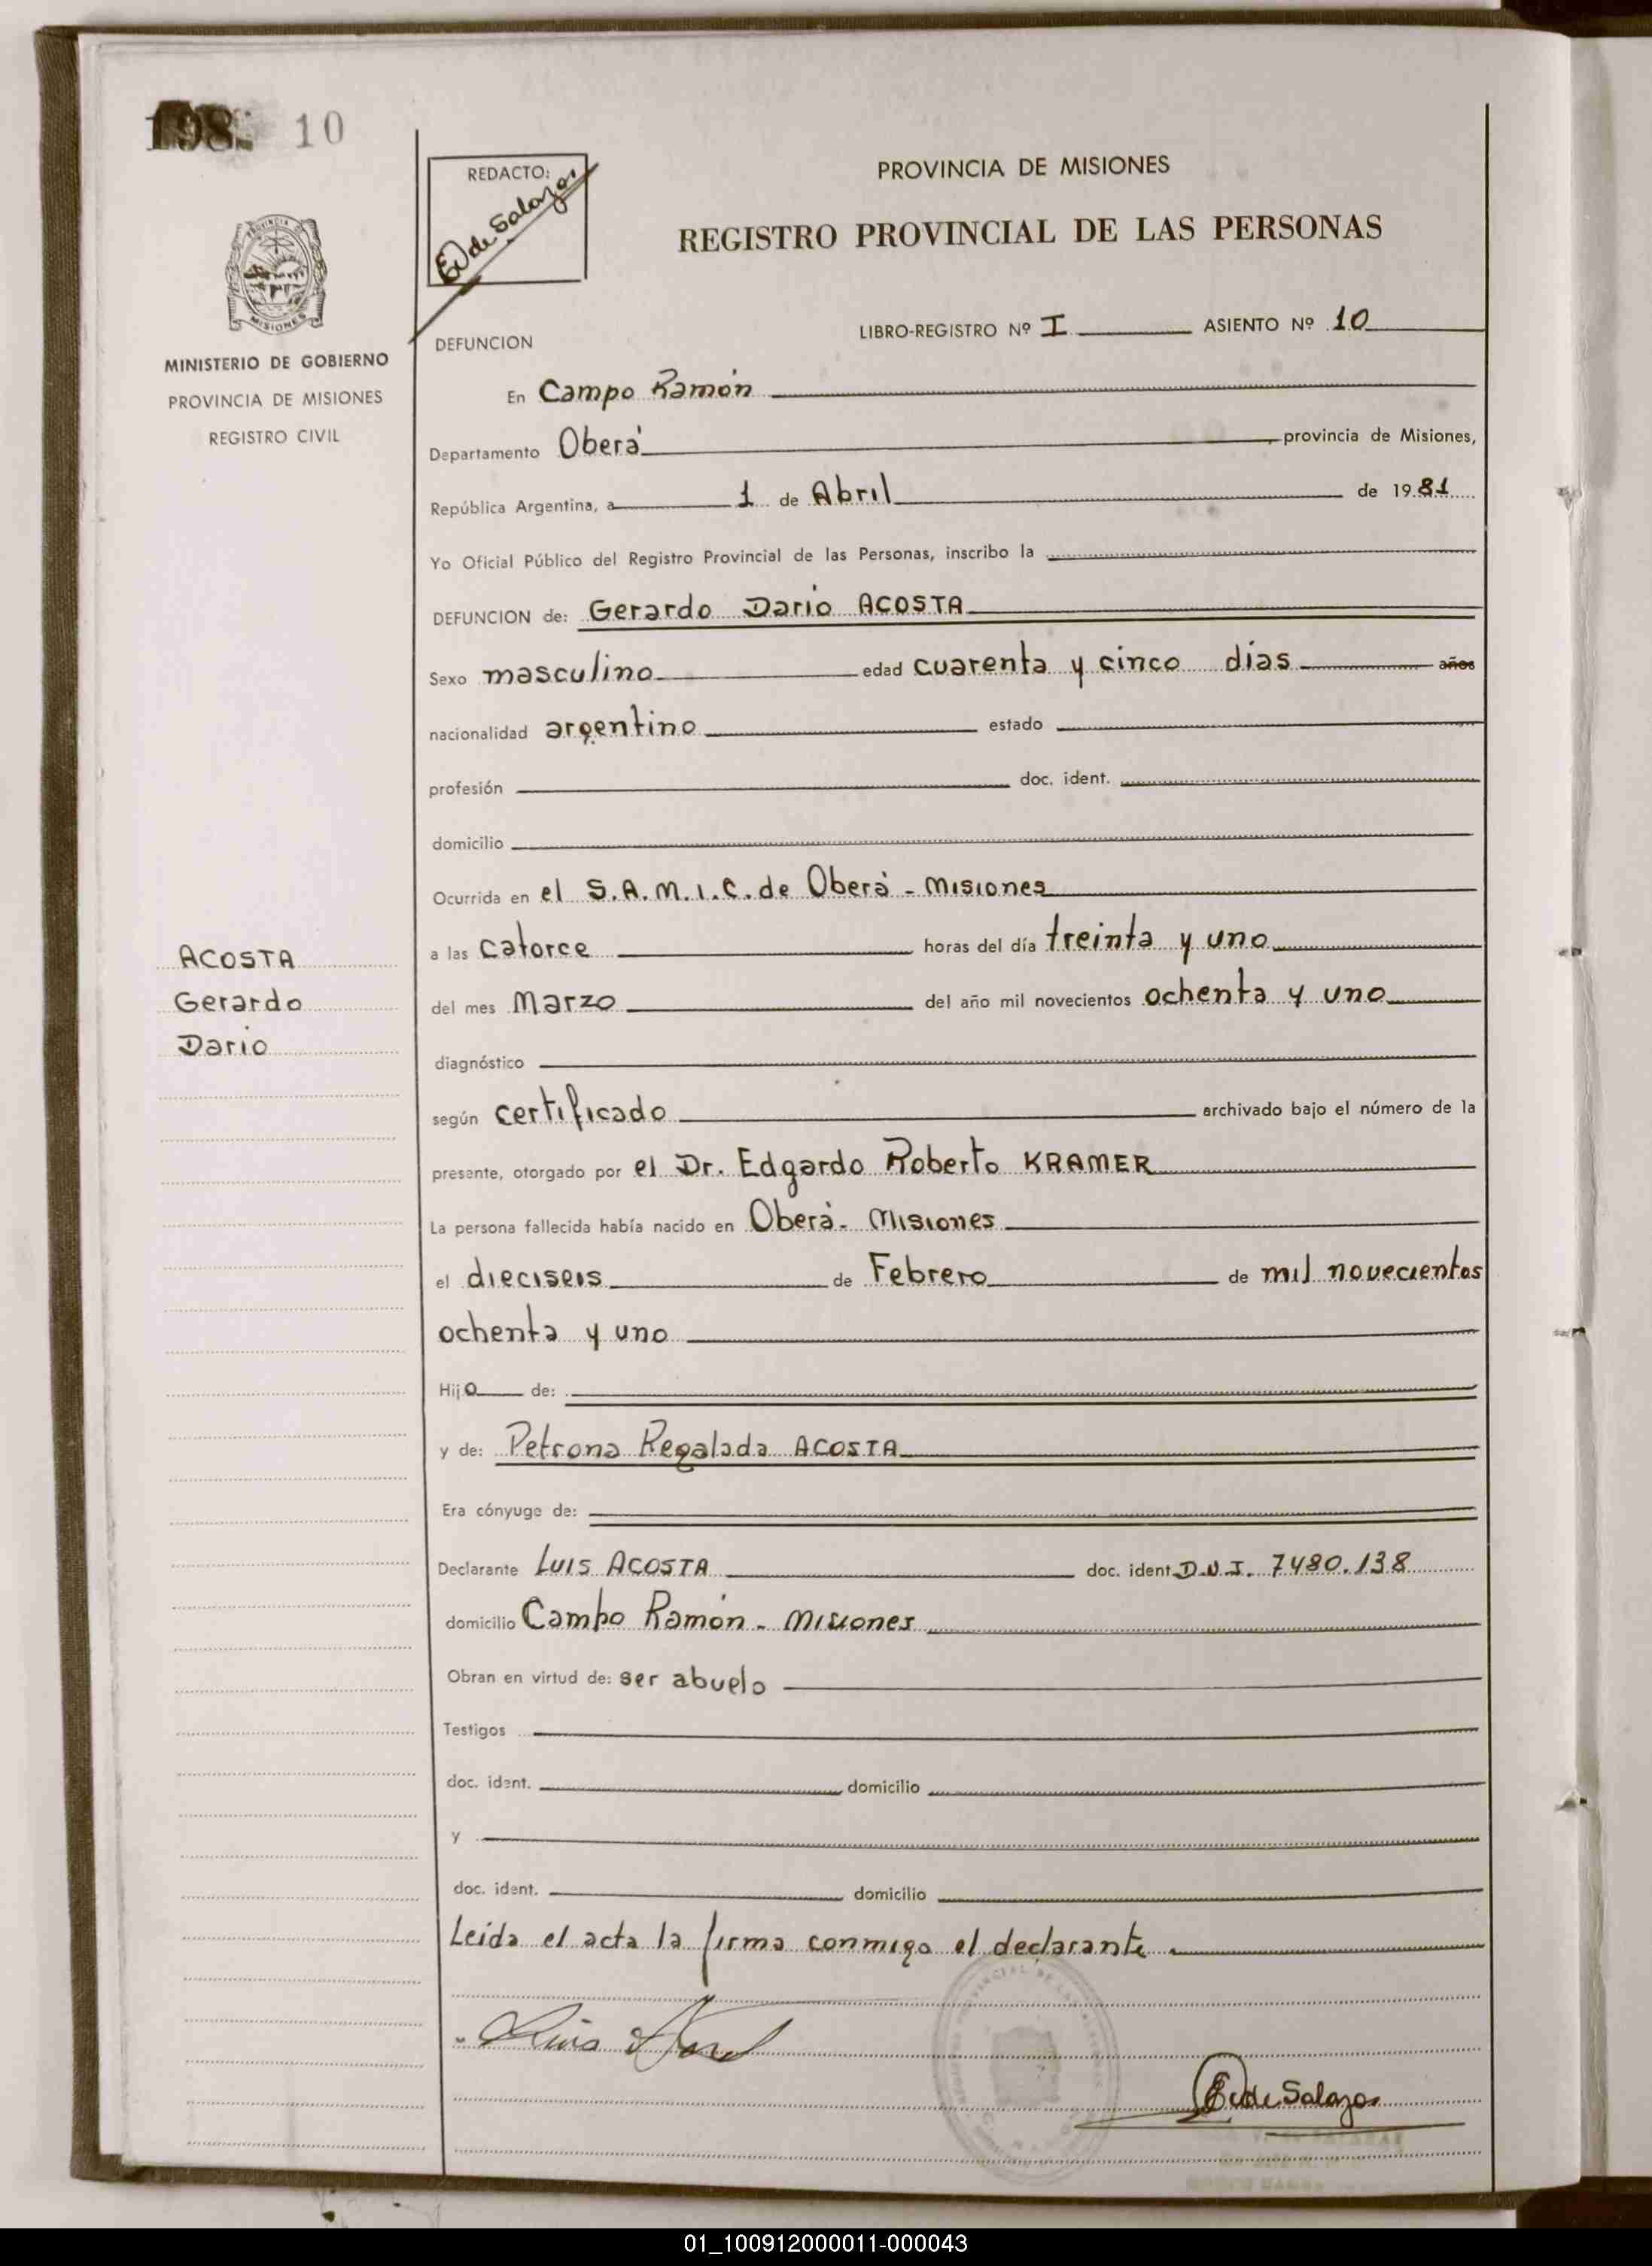 198 10
REDACTO:
E de Salazar
PROVINCIA DE MISIONES
REGISTRO PROVINCIAL DE LAS PERSONAS
MISIONES
MINISTERIO DE GOBIERNO
PROVINCIA DE MISIONES
REGISTRO CIVIL
DEFUNCION
LIBRO-REGISTRO Nº I ASIENTO Nº 10
En Campo Ramón
Departamento Oberá, provincia de Misiones,
República Argentina, a 1 de Abril de 1981
Yo Oficial Público del Registro Provincial de las Personas, inscribo la
DEFUNCION de: Gerardo Dario ACOSTA
Sexo masculino edad cuarenta y cinco días años
nacionalidad argentino estado
profesión doc. ident.
domicilio
Ocurrida en el S.A.M.I.C. de Oberá - Misiones
a las catorce horas del día treinta y uno
del mes Marzo del año mil novecientos ochenta y uno
ACOSTA
Gerardo
Dario
diagnóstico
según certificado archivado bajo el número de la
presente, otorgado por el Dr. Edgardo Roberto KRAMER
La persona fallecida había nacido en Oberá - Misiones
el dieciseis de Febrero de mil novecientos
ochenta y uno
Hijo de:
y de: Petrona Regalada ACOSTA
Era cónyuge de:
Declarante LUIS ACOSTA doc. ident. D.N.I. 7480.138
domicilio Campo Ramón - Misiones
Obran en virtud de: ser abuelo
Testigos
doc. ident. domicilio
y
doc. ident. domicilio
Leída el acta la firma conmigo el declarante
Luis
E de Salazar
01_100912000011-000043